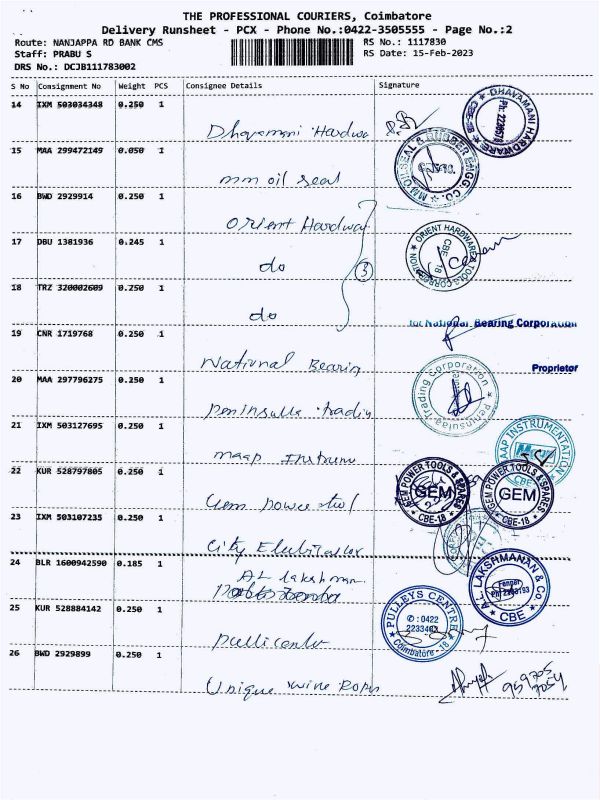 THE PROFESSIONAL COURIERS, Coimbatore
Delivery Runsheet - PCX - Phone No.:0422-3505555 - Page No.:2
Route: NANJAPPA RD BANK CMS RS No.: 1117830
Staff: PRABU S RS Date: 15-Feb-2023
DRS No.: DCJB111783002
S No Consignment No Weight PCS Consignee Details Signature
14 IXM 503034348 0.250 1
Dhavamani Hardwa
DHAVAMANI HARDWARE CBE-18
15 MAA 299472149 0.050 1
mm oil seal
MM OIL SEAL & RUBBER ENGG. CO.
16 BWD 2929914 0.250 1
Orient Hardwa
17 DBU 1381936 0.245 1
do
3
ORIENT HARDWARE & TOOLS CORPORATION CBE 18
18 TRZ 320002609 0.250 1
do
for National Bearing Corporation
19 CNR 1719768 0.250 1
National Bearing
Proprietor
20 MAA 297796275 0.250 1
Peninsulla tradin
Peninsulag Trading Corporation
21 IXM 503127695 0.250 1
maap Instrum
MAAP INSTRUMENTATION CBE
22 KUR 528797805 0.250 1
Gem power tool
GEM POWER TOOLS & SPARES GEM CBE-18
GEM POWER TOOLS & SPARES GEM CBE-18
23 IXM 503107235 0.250 1
24 BLR 1600942590 0.185 1
AL lakshman
A.L. LAKSHMANAN & Co. CBE
25 KUR 528884142 0.250 1
PULLEYS CENTRE ✆ : 0422 Coimbatore - 18
26 BWD 2929899 0.250 1
Unique wire Ropes